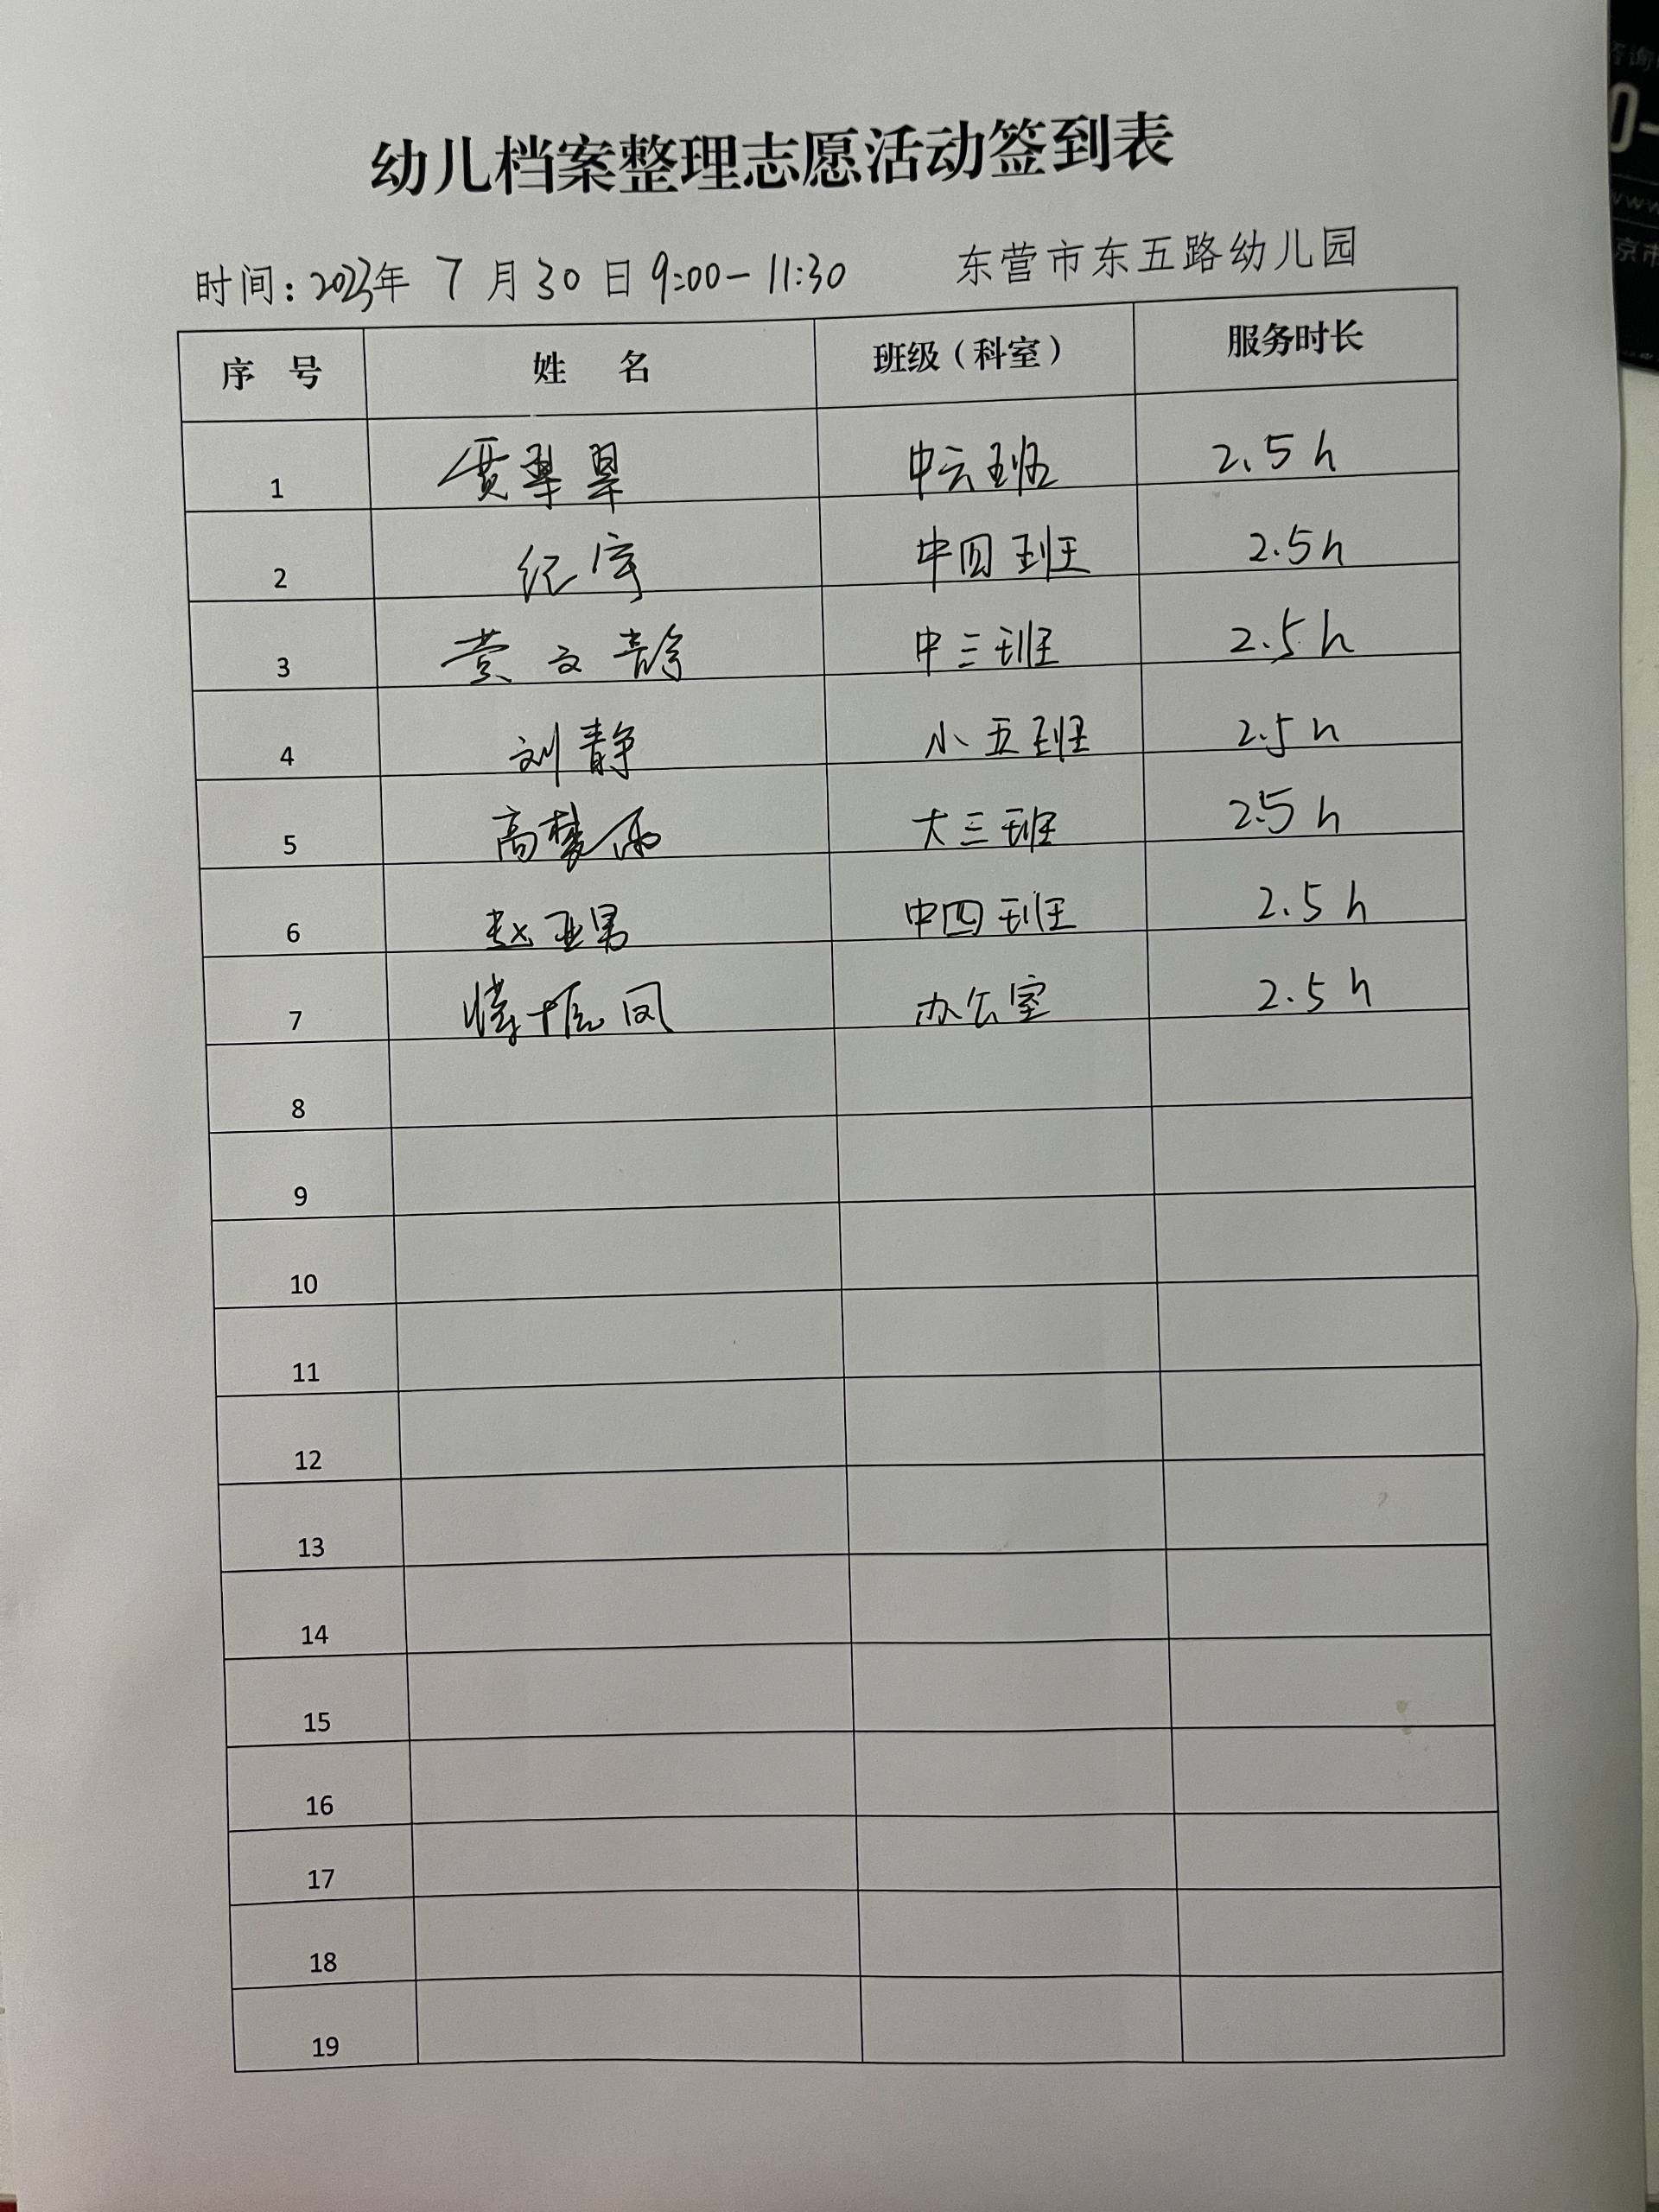 幼儿档案整理志愿活动签到表
时间：2023年 7 月 30 日 9:00-11:30 东营市东五路幼儿园
序 号 姓 名 班级（科室） 服务时长
1 贾翠翠 中六班 2.5h
2 纪宇 中四班 2.5h
3 黄文静 中三班 2.5h
4 刘静 小五班 2.5h
5 高梦雨 大三班 2.5h
6 赵亚男 中四班 2.5h
7 凤 办公室 2.5h
8
9
10
11
12
13
14
15
16
17
18
19